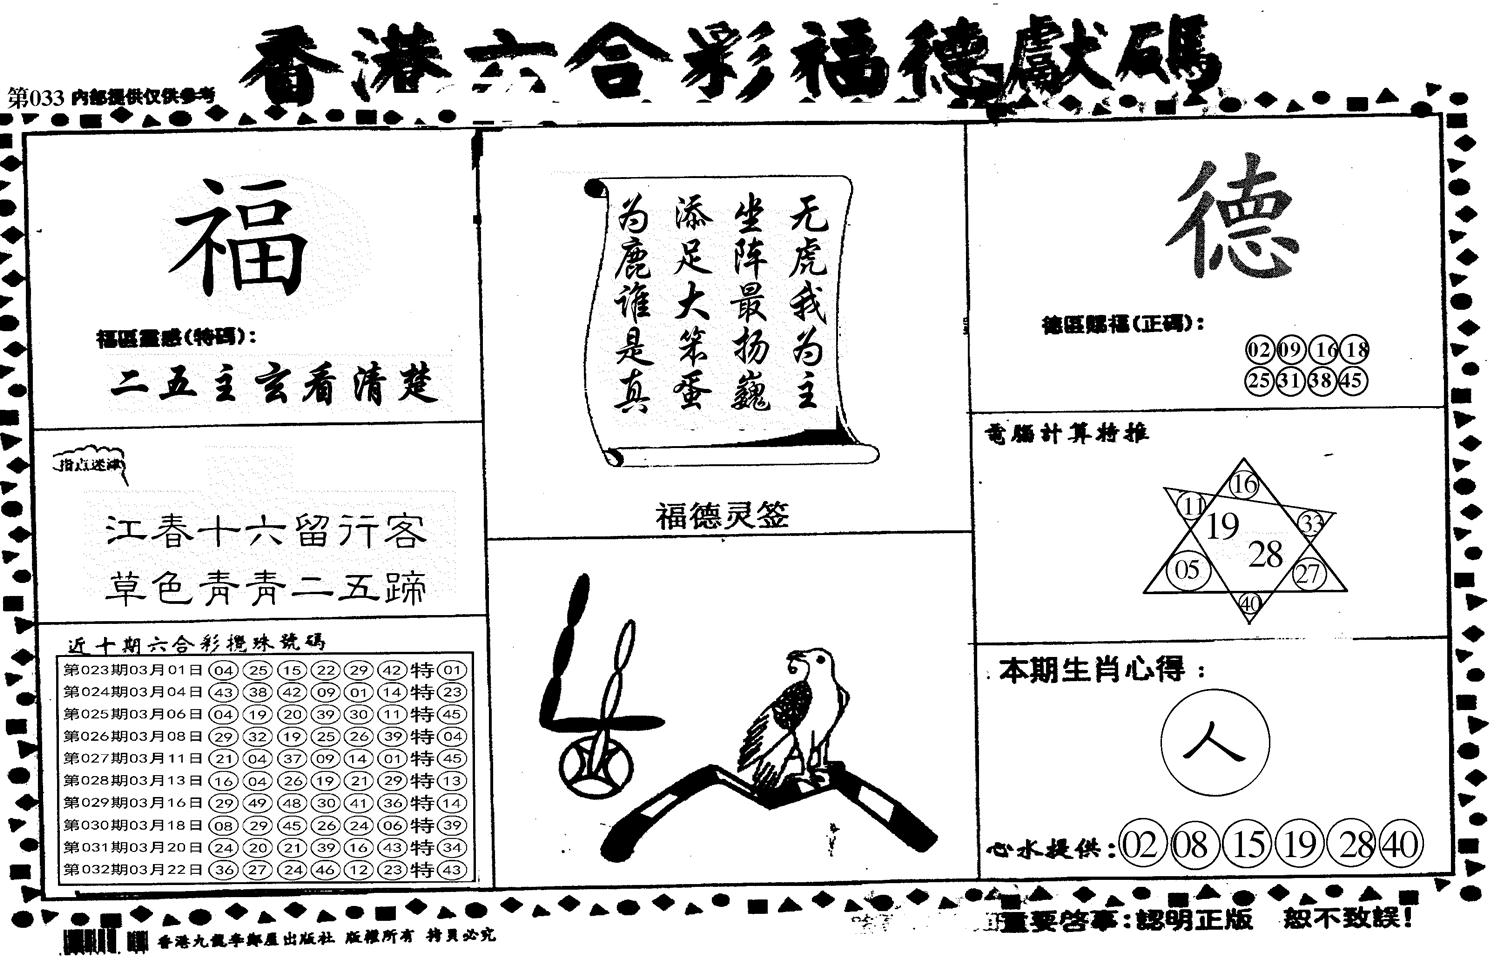 香港六合彩福德獻碼
第033 内部提供仅供参考
福
福區靈感(特碼):
二五主玄看清楚
指点迷津
江春十六留行客
草色青青二五蹄
近十期六合彩攪珠號碼
第023期03月01日 04 25 15 22 29 42 特 01
第024期03月04日 43 38 42 09 01 14 特 23
第025期03月06日 04 19 20 39 30 11 特 45
第026期03月08日 29 32 19 25 26 39 特 04
第027期03月11日 21 04 37 09 14 01 特 45
第028期03月13日 16 04 26 19 21 29 特 13
第029期03月16日 29 49 48 30 41 36 特 14
第030期03月18日 08 29 45 26 24 06 特 39
第031期03月20日 24 20 21 39 16 43 特 34
第032期03月22日 36 27 24 46 12 23 特 43
无虎我为主
坐阵最扬巍
添足大笨蛋
为鹿谁是真
福德灵签
德
德區賜福(正碼):
02 09 16 18
25 31 38 45
電腦計算特推
16
11
33
19
28
05
27
40
本期生肖心得:
人
心水提供: 02 08 15 19 28 40
香港九龍李鄭屋出版社 版權所有 拷貝必究
重要啓事:認明正版 恕不致誤!